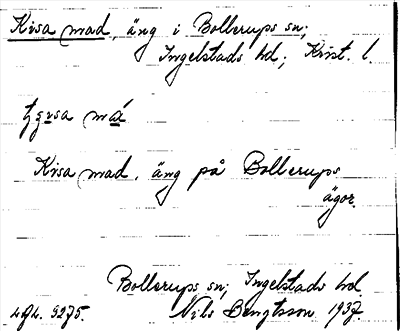 Kisa mad, äng i Bollerups sn;
Ingelstads hd; Krist. l.
Kisa mad, äng på Bollerups
ägor.
Bollerups sn; Ingelstads hd.
Nils Bengtsson 1937.